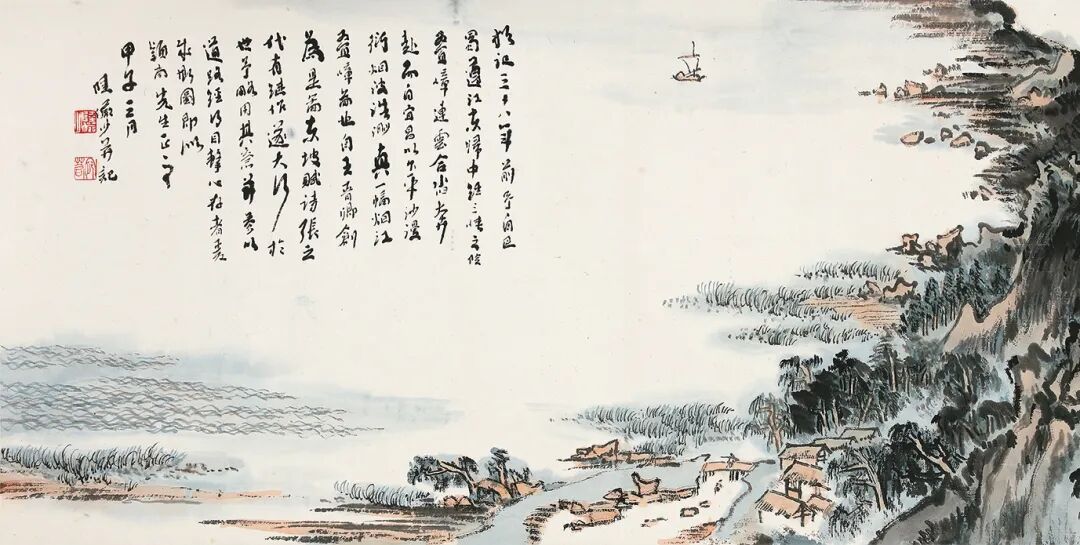 猶記三十八年前予自巴
蜀遵江東歸中經三峽之險
疊嶂連雲合沓奔
赴而自宜昌以下平沙漫
衍烟波浩渺真一幅烟江
疊嶂圖也自王晉卿創
為是圖東坡賦詩張之
代有繼作遂大行於
世予略用其意并參以
道路經行目擊心存者
成斯圖即似
穎南先生正之
甲子三月
陸儼少并記